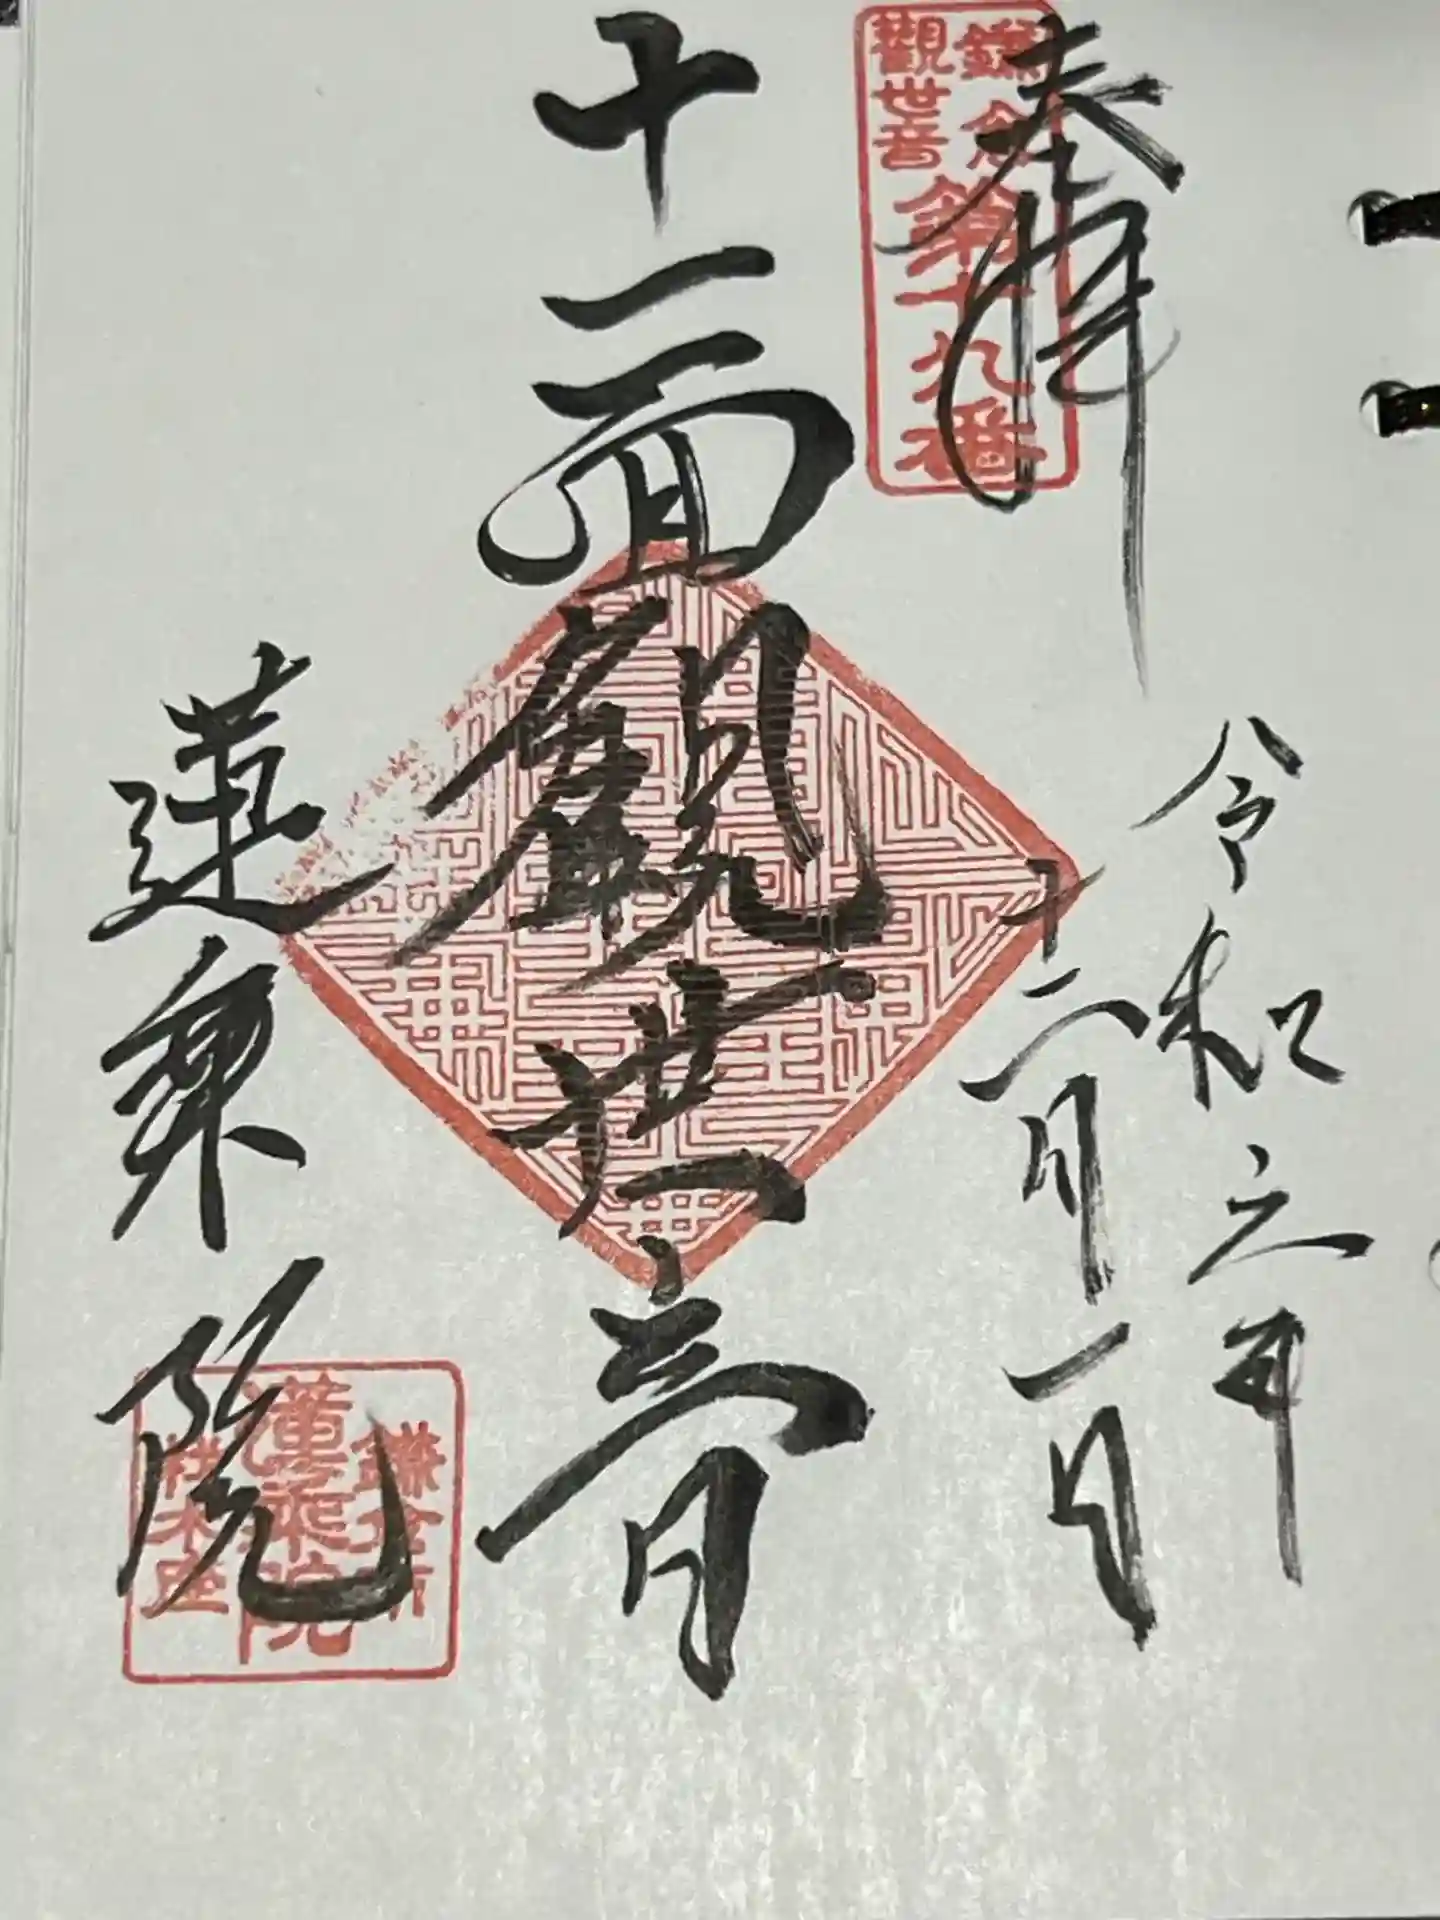 奉拝
鎌倉
觀世音
第十九番
令和元年
十二月一日
十一面觀世音
蓮乗院
鎌倉市
蓮乗院
材木座